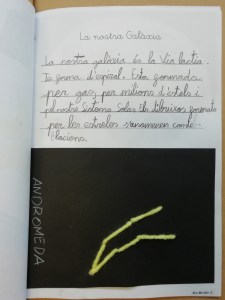 La nostra Galàxia
La nostra galàxia és la Via làctia.
Te forma d'espiral. Esta formada
per gas, per milions d'estels i
pel nostre Sistema Solar. Els dibuixos formats
per les estreles s'anomenen conste-
lacions.
ANDROMEDA